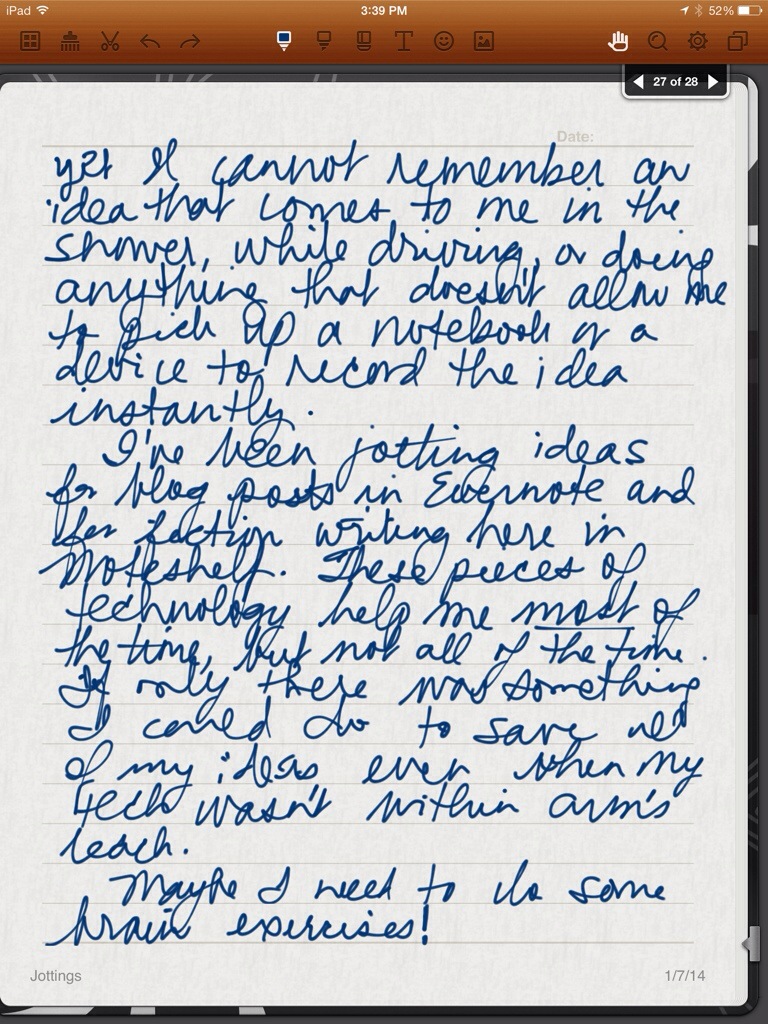 iPad 3:39 PM 52%
T
27 of 28
Date:
yet I cannot remember an
idea that comes to me in the
shower, while driving, or doing
anything that doesn't allow me
to pick up a notebook or a
device to record the idea
instantly.
I've been jotting ideas
for blog posts in Evernote and
for fiction writing here in
Noteshelf. These pieces of
technology help me most of
the time, but not all of the time.
If only there was something
I could do to save all
of my ideas even when my
tech wasn't within arm's
reach.
Maybe I need to do some
brain exercises!
Jottings 1/7/14